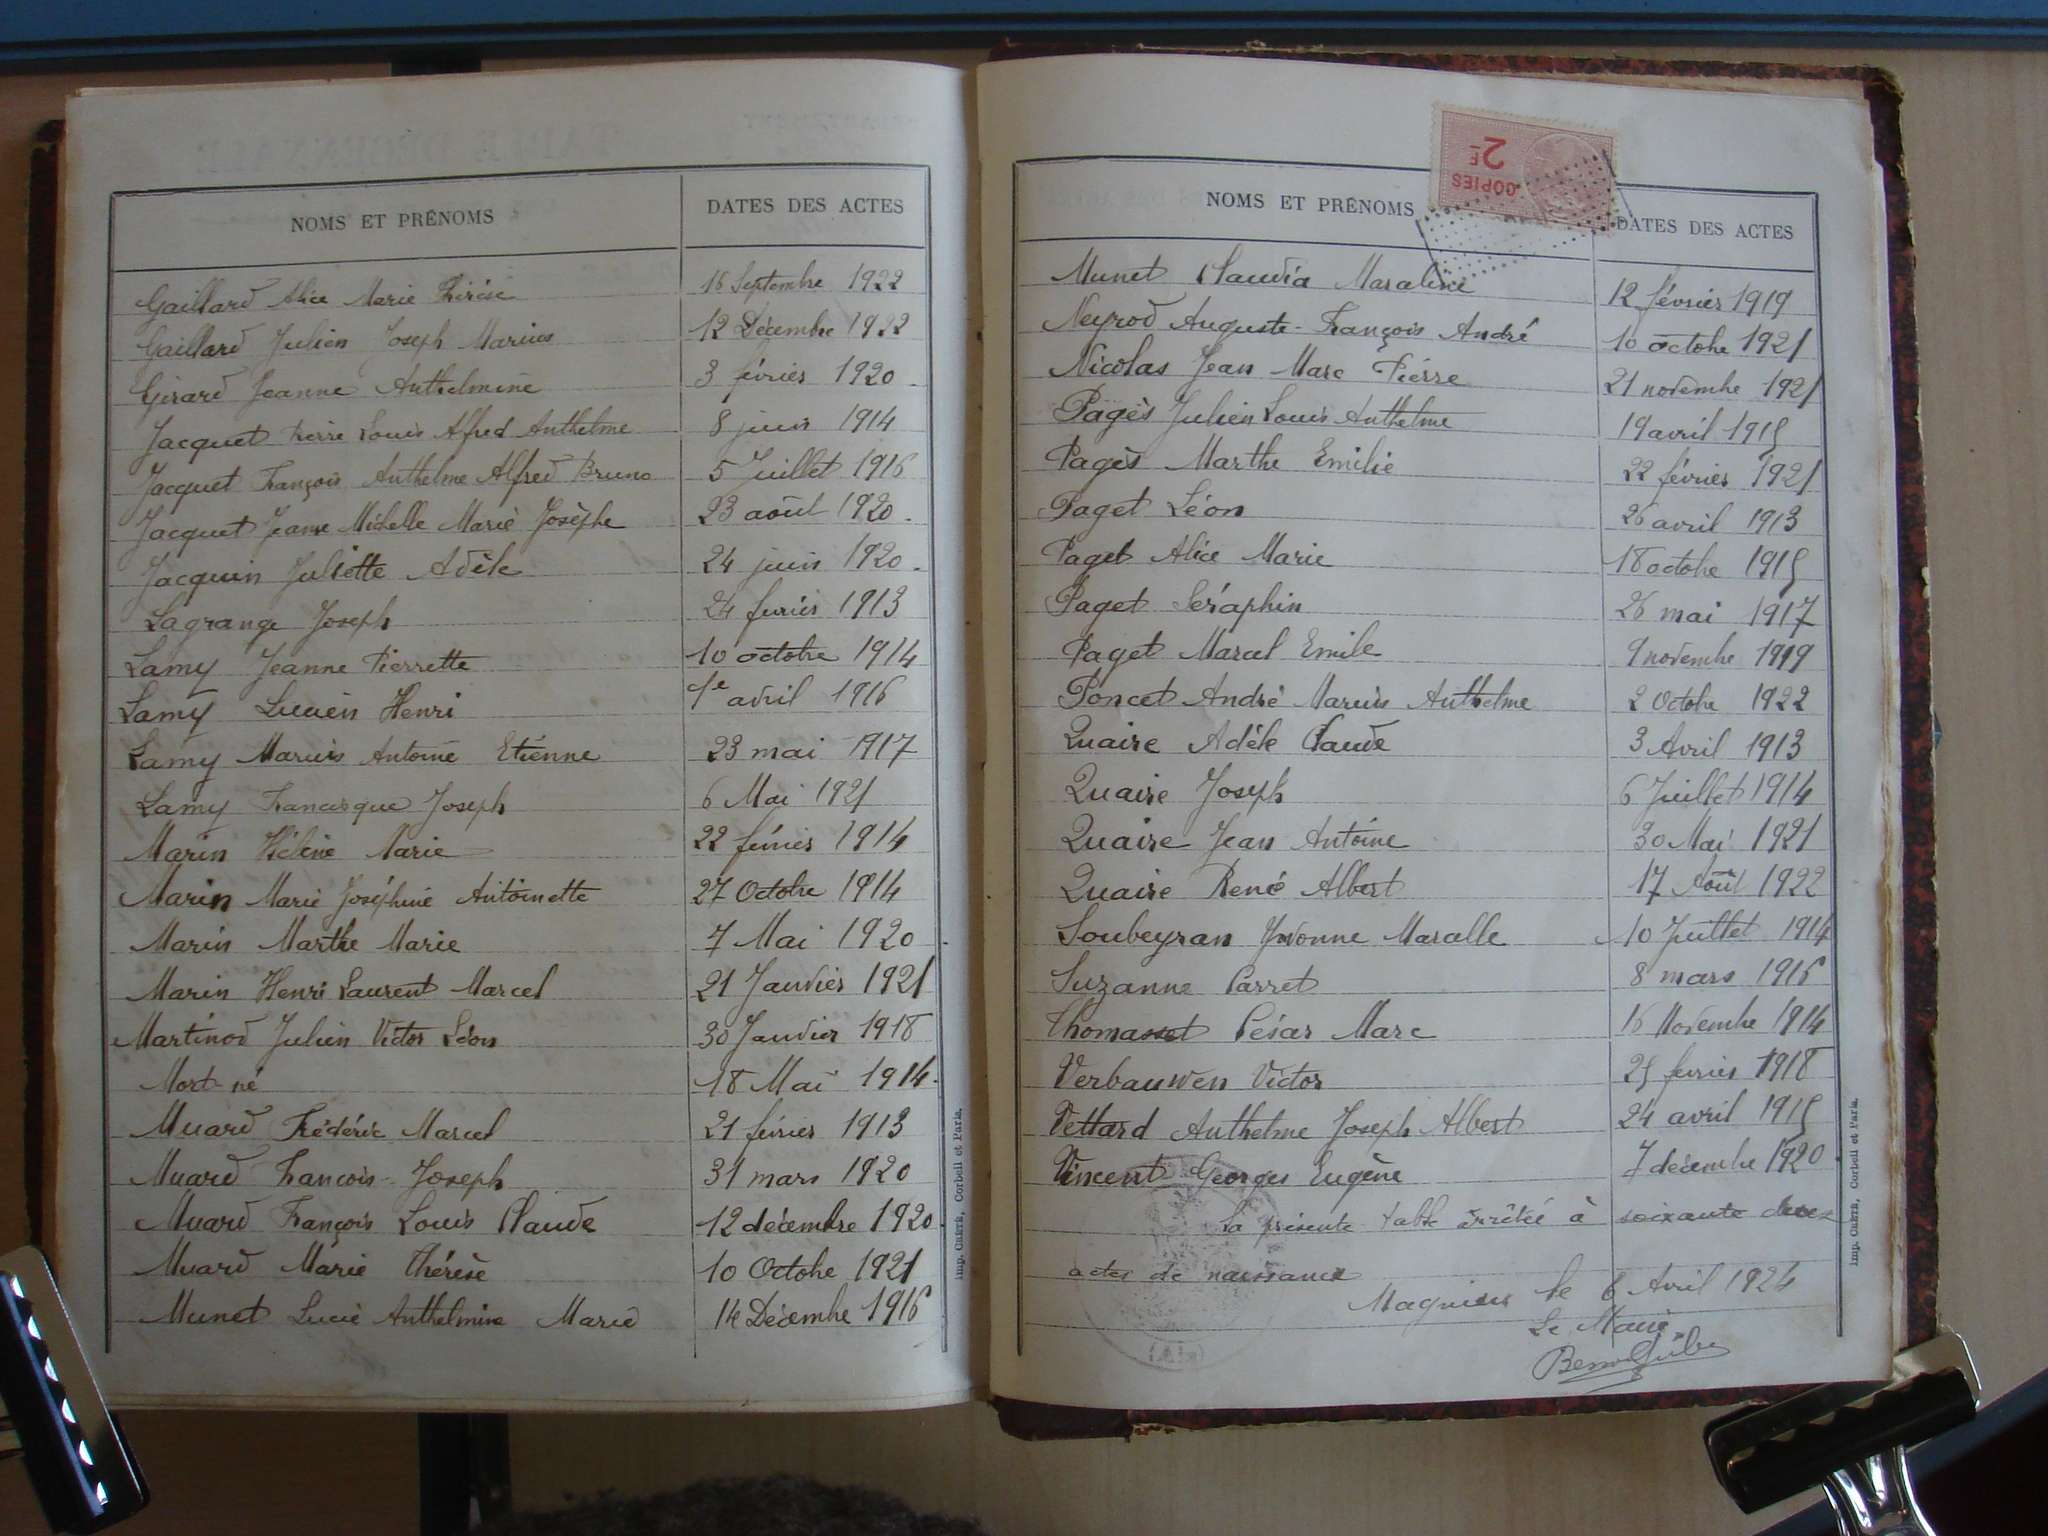 NOMS ET PRÉNOMS DATES DES ACTES
Gaillard Alice Marie Thérèse 16 Septembre 1922
Gaillard Julien Joseph Marius 12 Décembre 1922
Girard Jeanne Anthelmine 3 février 1920
Jacquet Pierre Louis Alfred Anthelme 8 juin 1914
Jacquet François Anthelme Alfred Bruno 5 Juillet 1916
Jacquet Jeanne Michelle Marie Josèphe 23 août 1920
Jacquin Juliette Adèle 24 juin 1920
Lagrange Joseph 24 février 1913
Lamy Jeanne Pierrette 10 octobre 1914
Lamy Lucien Henri 1e avril 1916
Lamy Marius Antoine Etienne 23 mai 1917
Lamy Francisque Joseph 6 Mai 1921
Marin Hélène Marie 22 février 1914
Marin Marie Joséphine Antoinette 27 Octobre 1914
Marin Marthe Marie 7 Mai 1920
Marin Henri Laurent Marcel 21 Janvier 1921
Martinod Julien Victor Léon 30 Janvier 1918
Mort-né 18 Mai 1914
Muard Frédéric Marcel 21 février 1913
Muard François Joseph 31 mars 1920
Muard François Louis Claude 12 décembre 1920
Muard Marie Thérèse 10 Octobre 1921
Munet Lucie Anthelmine Marie 14 Décembre 1916
Imp. Oudin, Corbeil et Paris.
COPIES
2F
NOMS ET PRÉNOMS DATES DES ACTES
Munet Claudia Marceline 12 février 1919
Neyrod Auguste-François André 10 octobre 1921
Nicolas Jean Marc Pierre 21 novembre 1921
Pagès Julien Louis Anthelme 19 avril 1915
Pagès Marthe Emilie 22 février 1921
Paget Léon 26 avril 1913
Paget Alice Marie 18 octobre 1915
Paget Séraphin 26 mai 1917
Paget Marcel Emile 9 novembre 1919
Poncet André Marius Anthelme 2 Octobre 1922
Quaire Adèle Claude 3 Avril 1913
Quaire Joseph 6 Juillet 1914
Quaire Jean Antoine 30 Mai 1921
Quaire René Albert 17 Août 1922
Soubeyran Yvonne Marcelle 10 Juillet 1914
Suzanne Carret 8 mars 1916
Thomasset César Marc 16 Novembre 1914
Verbauwen Victor 25 février 1918
Vettard Anthelme Joseph Albert 24 avril 1915
Vincent Georges Eugène 7 décembre 1920
La présente table arrêtée à soixante deux
actes de naissance
Magnieu le 6 Avril 1924
Le Maire
Corbeil et Paris.